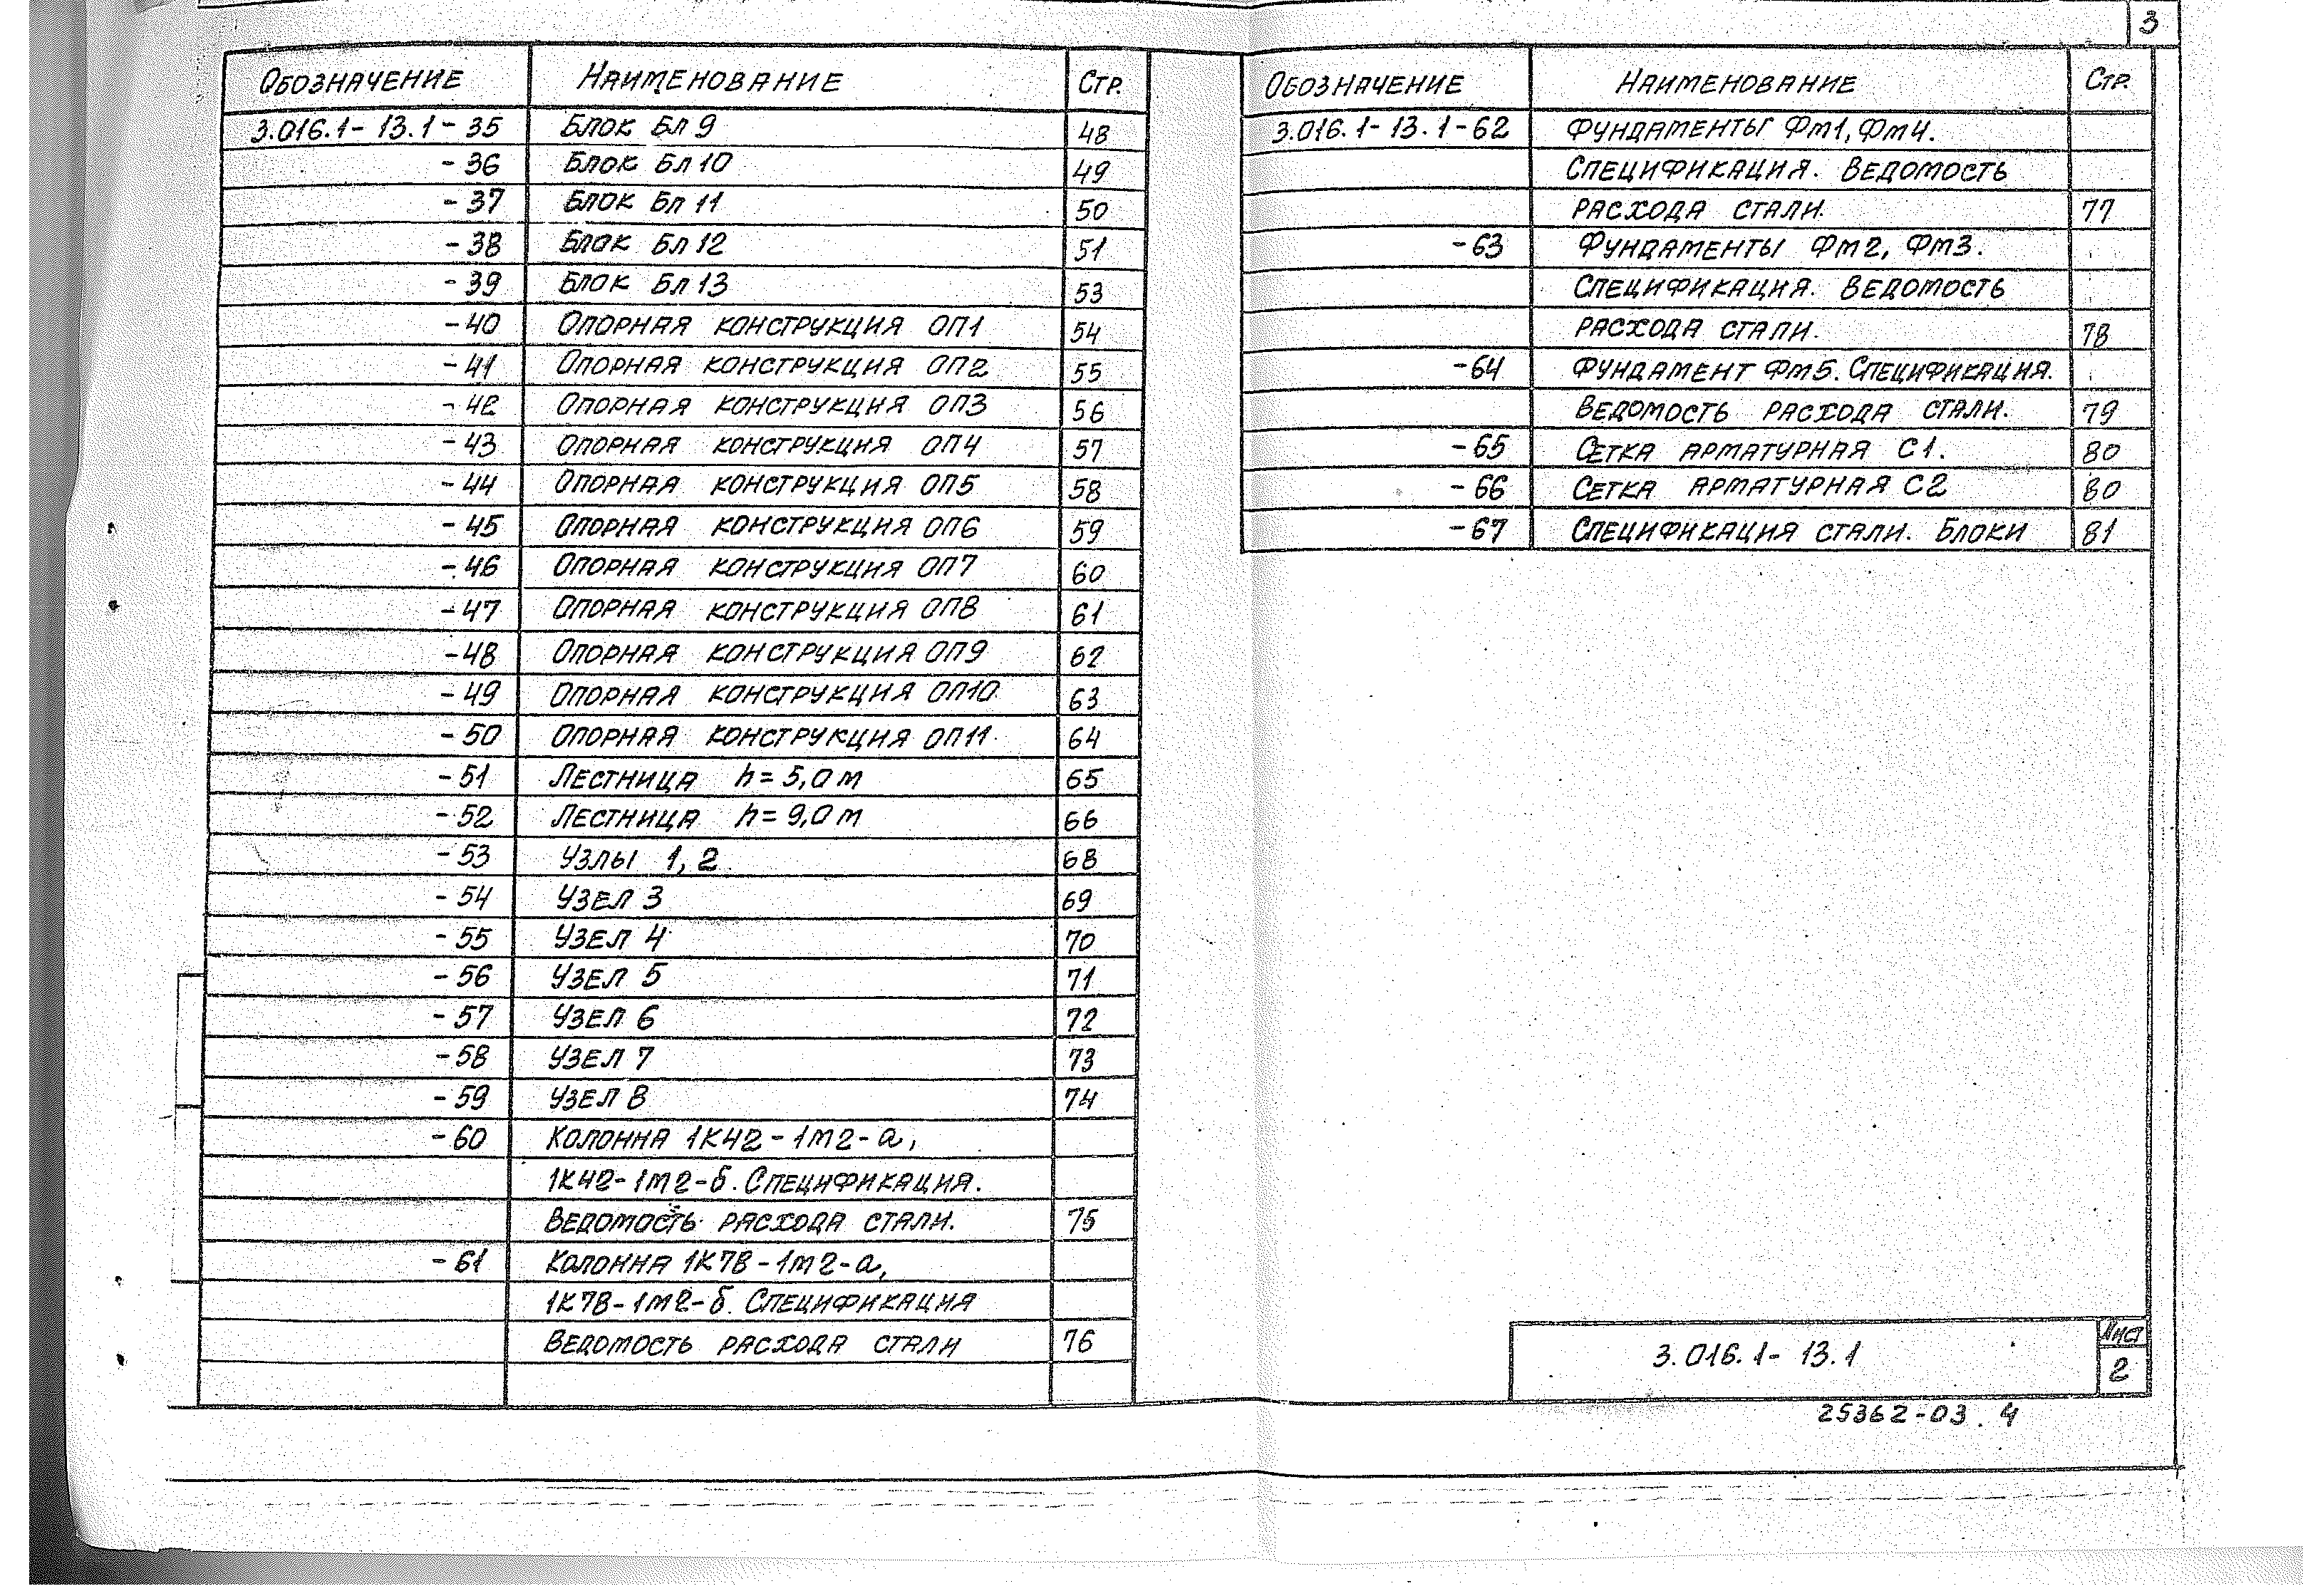 3
Обозначение Наименование Стр.
3.016.1-13.1-35 Блок Бл 9 48
-36 Блок Бл 10 49
-37 Блок Бл 11 50
-38 Блок Бл 12 51
-39 Блок Бл 13 53
-40 Опорная конструкция ОП1 54
-41 Опорная конструкция ОП2 55
-42 Опорная конструкция ОП3 56
-43 Опорная конструкция ОП4 57
-44 Опорная конструкция ОП5 58
-45 Опорная конструкция ОП6 59
-46 Опорная конструкция ОП7 60
-47 Опорная конструкция ОП8 61
-48 Опорная конструкция ОП9 62
-49 Опорная конструкция ОП10 63
-50 Опорная конструкция ОП11 64
-51 Лестница h=5,0м 65
-52 Лестница h=9,0м 66
-53 Узлы 1, 2 68
-54 Узел 3 69
-55 Узел 4 70
-56 Узел 5 71
-57 Узел 6 72
-58 Узел 7 73
-59 Узел 8 74
-60 Колонна 1К42-1м2-а,
1К42-1м2-б. Спецификация.
Ведомость расхода стали. 75
-61 Колонна 1К78-1м2-а,
1К78-1м2-б. Спецификация
Ведомость расхода стали 76
Обозначение Наименование Стр.
3.016.1-13.1-62 Фундаменты Фм1, Фм4.
Спецификация. Ведомость
расхода стали. 77
-63 Фундаменты Фм2, Фм3.
Спецификация. Ведомость
расхода стали. 78
-64 Фундамент Фм5. Спецификация.
Ведомость расхода стали. 79
-65 Сетка арматурная С1. 80
-66 Сетка арматурная С2 80
-67 Спецификация стали. Блоки 81
3.016.1-13.1
Лист
2
25362-03 4